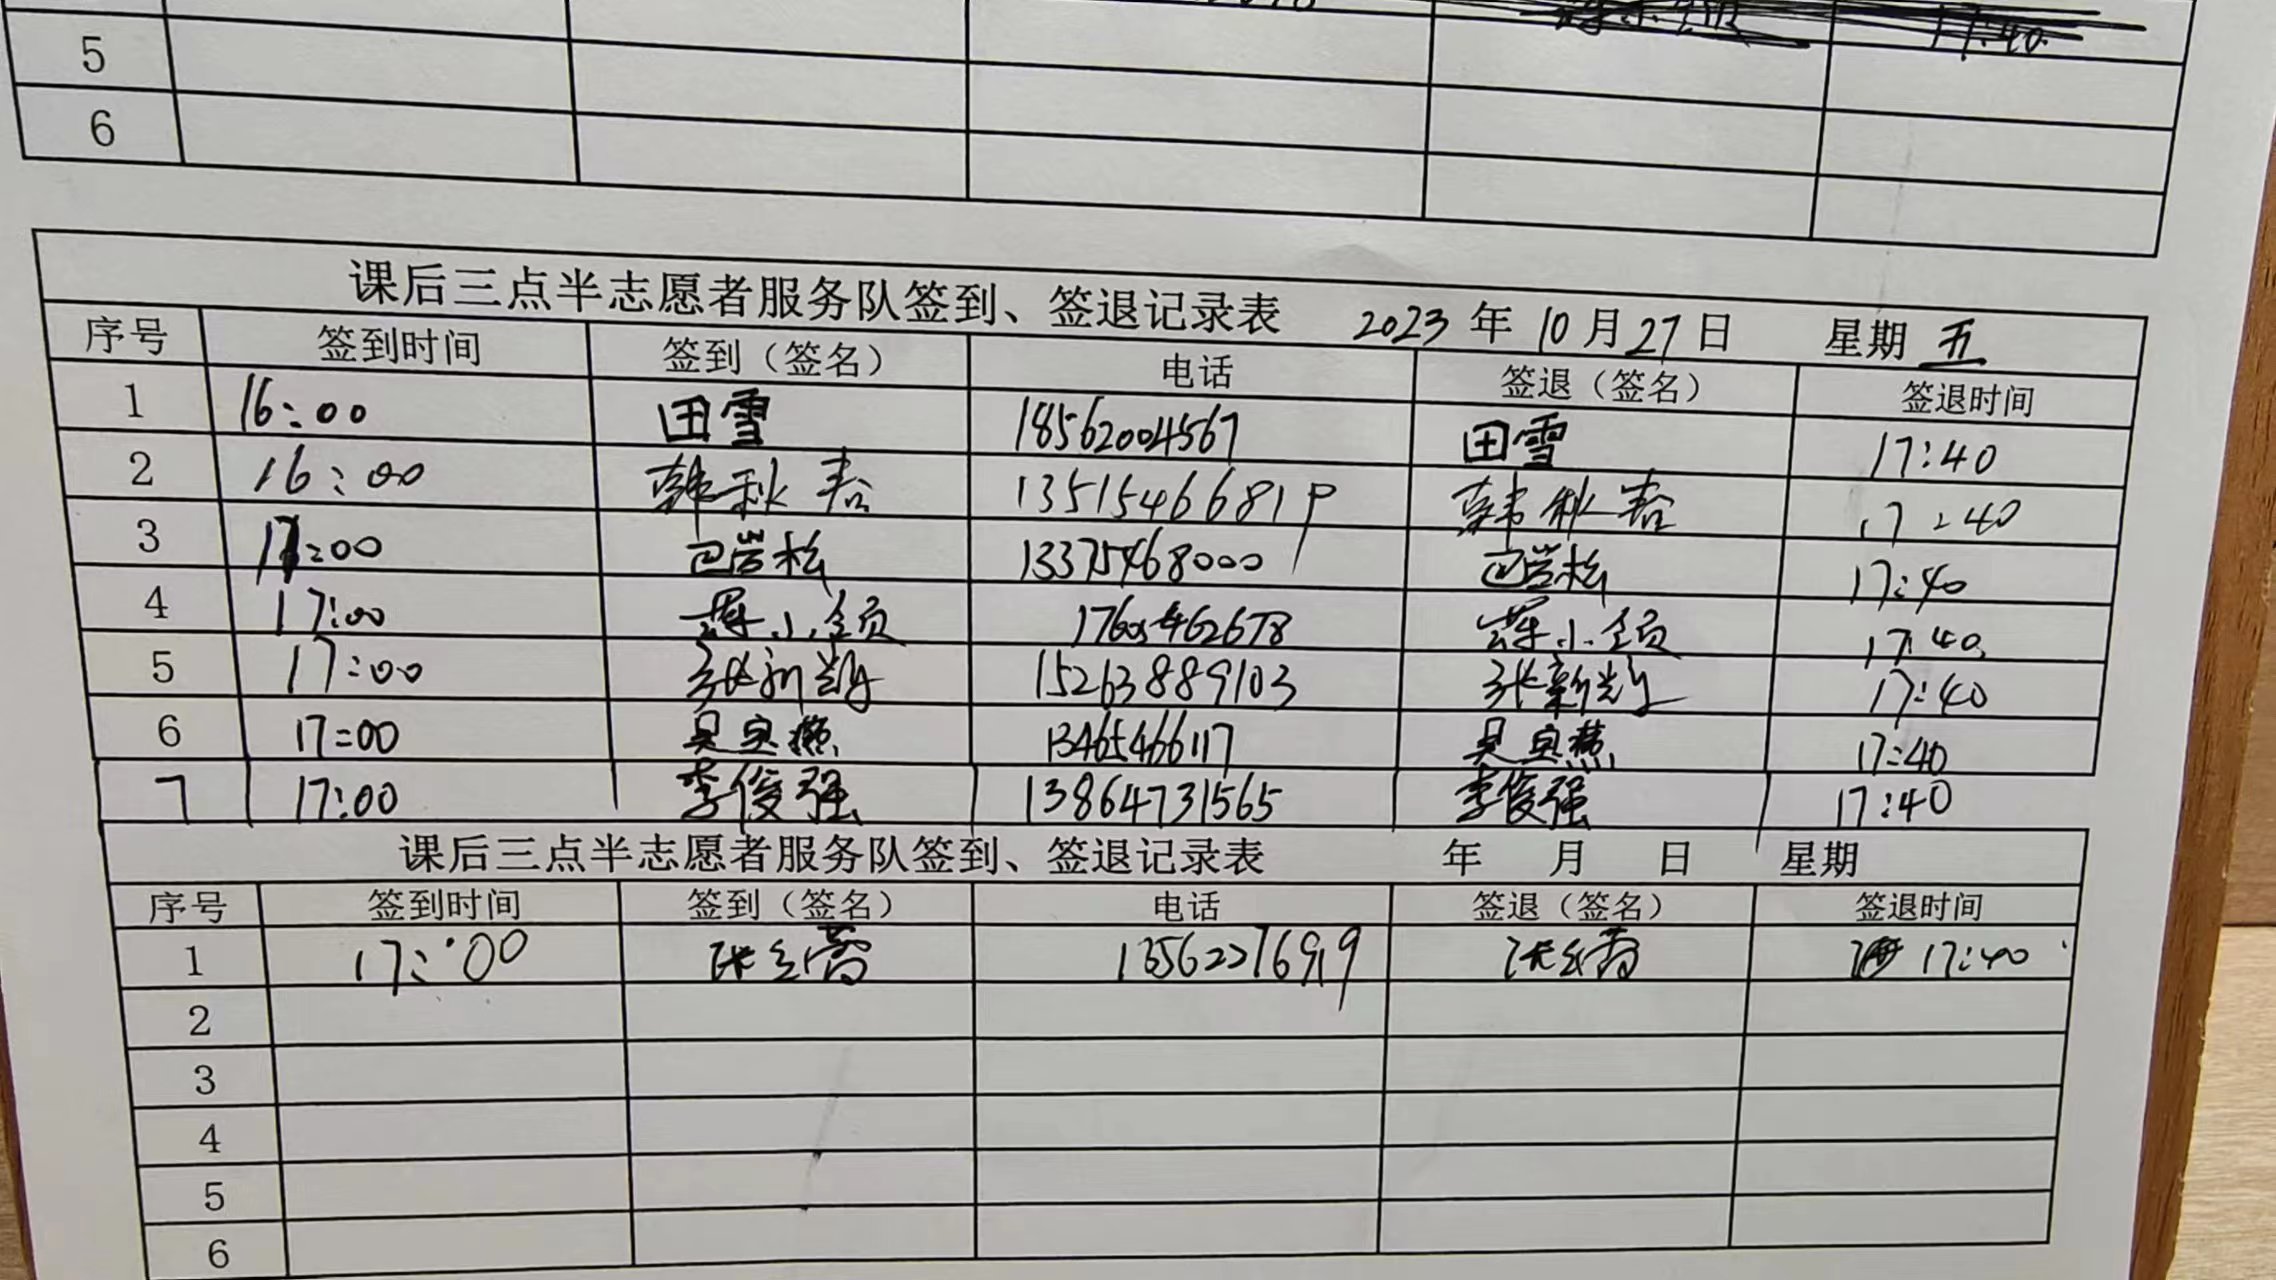 17:40
5
6
课后三点半志愿者服务队签到、签退记录表 2023 年 10 月 27 日 星期 五
序号 签到时间 签到（签名） 电话 签退（签名） 签退时间
1 16:00 田雪 18562004567 田雪 17:40
2 16:00 韩秋春 1351546681 韩秋春 17:40
3 17:00 巴岩松 13375468000 巴岩松 17:40
4 17:00 小 17605462678 小 17:40
5 17:00 张新 15263889103 张新 17:40
6 17:00 13465466117 17:40
7 17:00 李俊强 13864731565 李俊强 17:40
课后三点半志愿者服务队签到、签退记录表 年 月 日 星期
序号 签到时间 签到（签名） 电话 签退（签名） 签退时间
1 17:00 张 13562276919 张 17:40
2
3
4
5
6